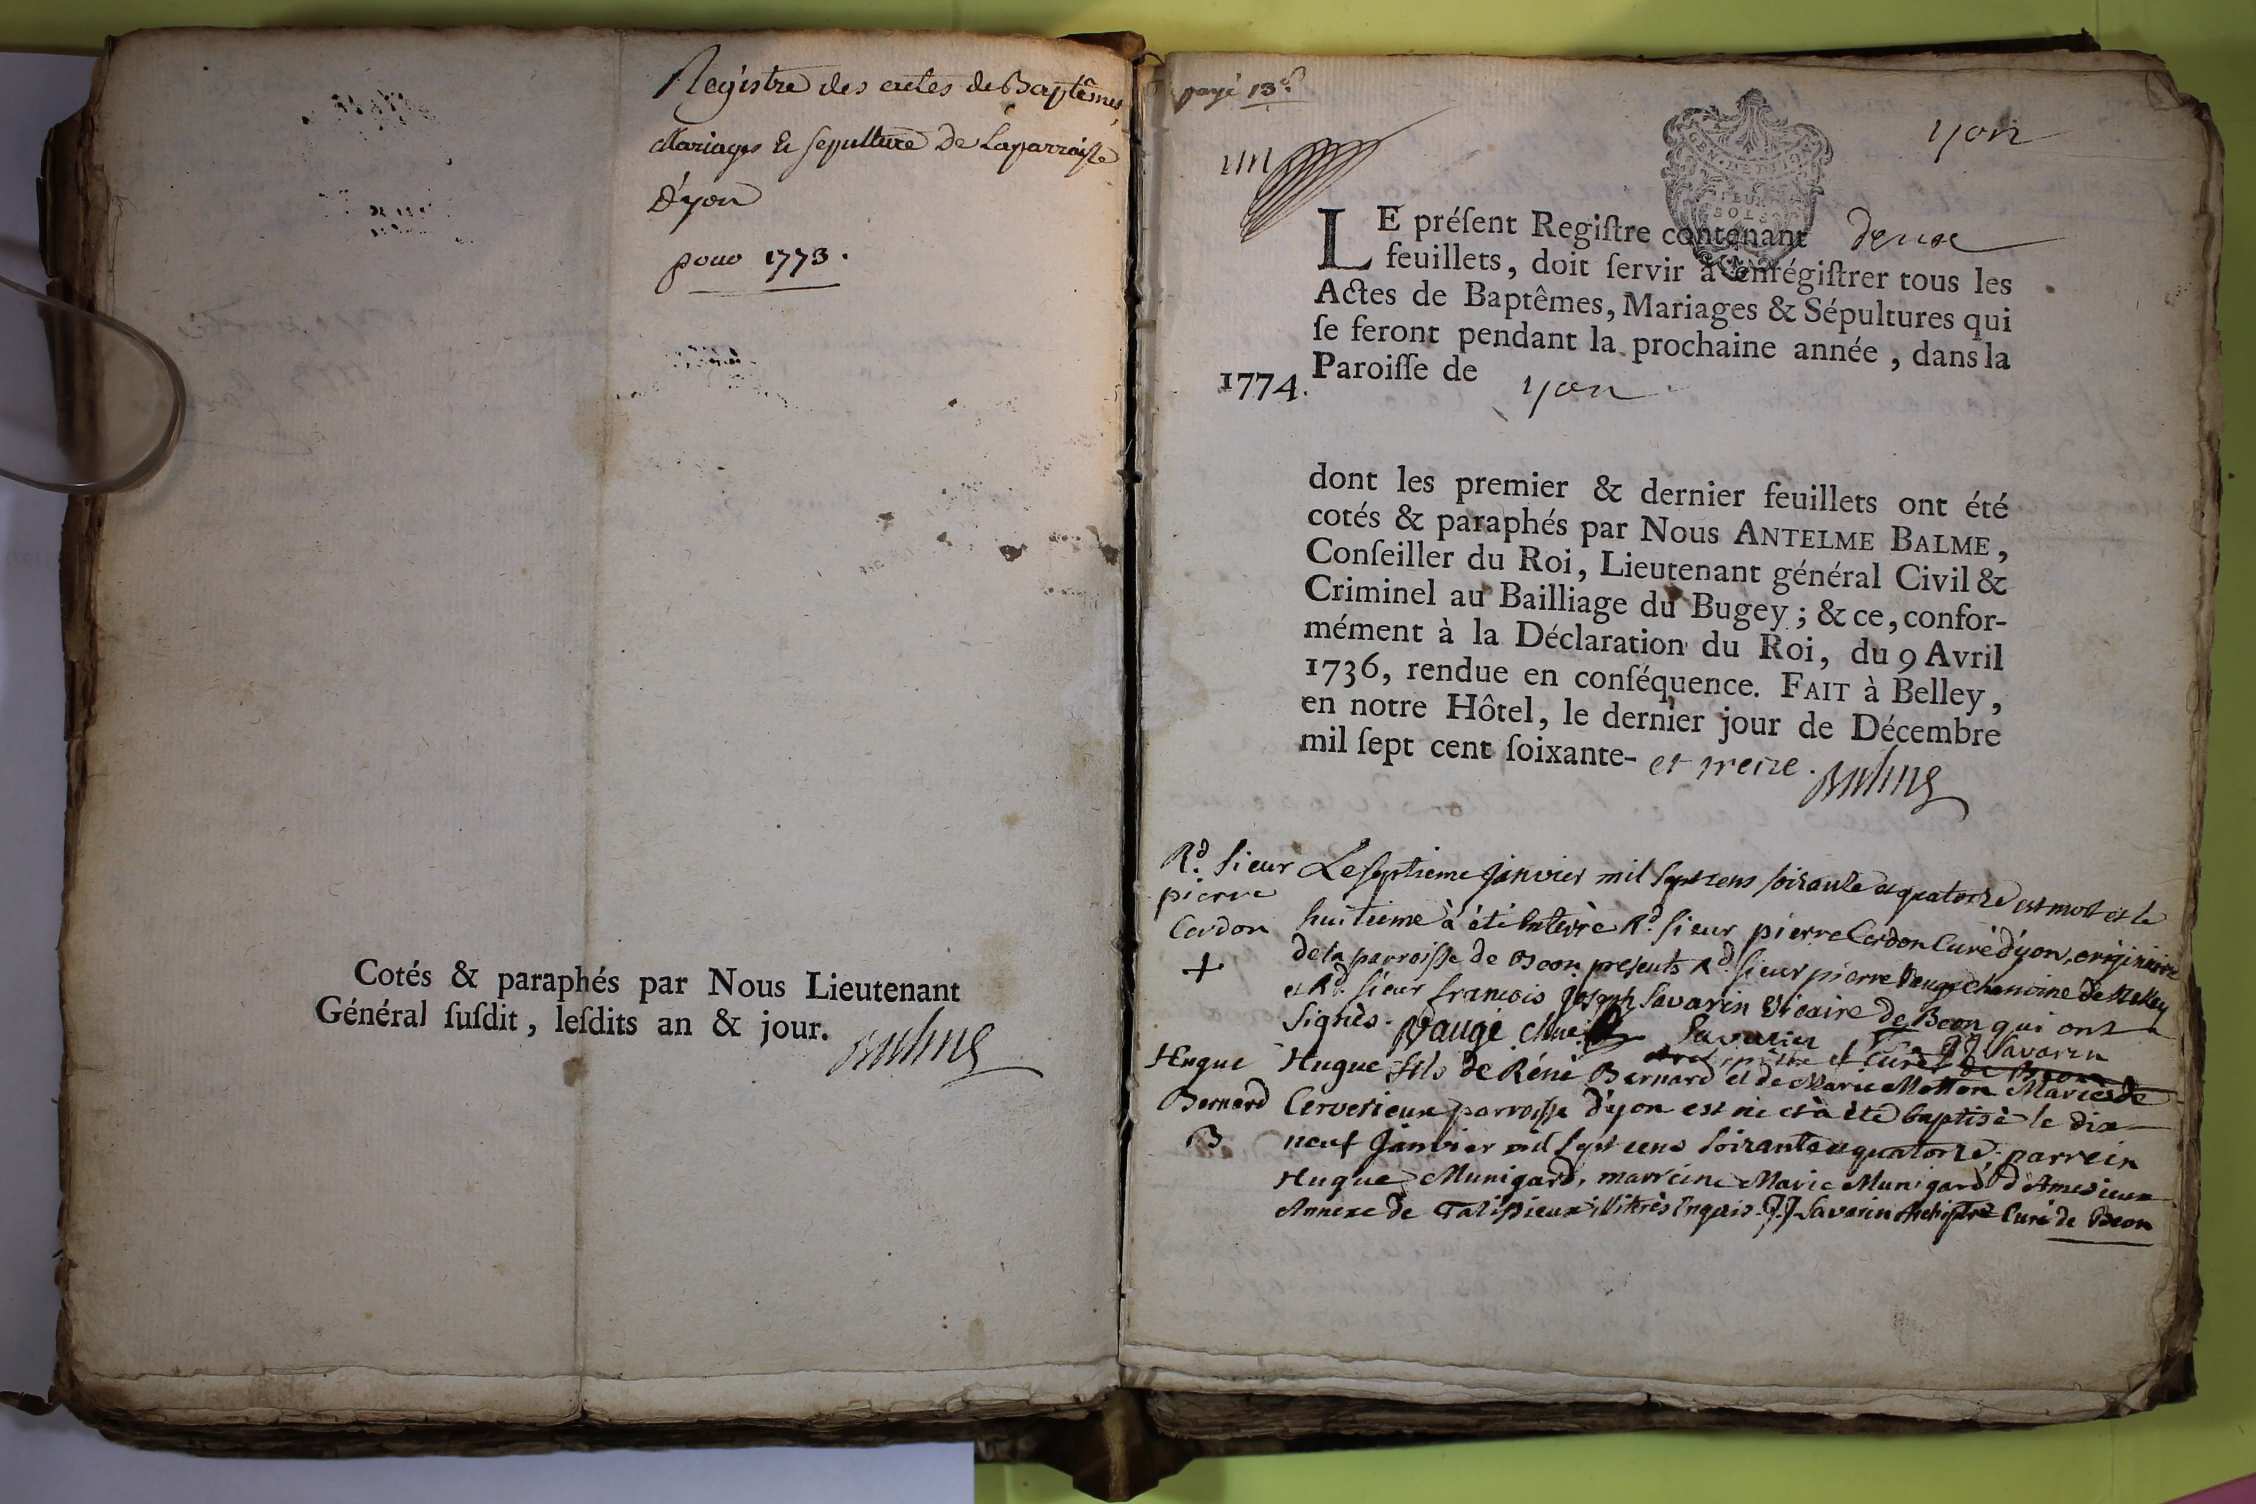 Registre des actes de Baptêmes,
Mariages Et sepulture De Laparroisse
D'yon
pour 1773.
Cotés & paraphés par Nous Lieutenant
Général ſuſdit, leſdits an & jour.
Balme
payé 13 s
yon
un
LE préſent Regiſtre contenant deux
feuillets, doit ſervir à enrégiſtrer tous les
Actes de Baptêmes, Mariages & Sépultures qui
ſe feront pendant la prochaine année, dans la
1774. Paroiſſe de yon
dont les premier & dernier feuillets ont été
cotés & paraphés par Nous ANTELME BALME,
Conſeiller du Roi, Lieutenant général Civil &
Criminel au Bailliage du Bugey; & ce, confor-
mément à la Déclaration du Roi, du 9 Avril
1736, rendue en conſéquence. FAIT à Belley,
en notre Hôtel, le dernier jour de Décembre
mil ſept cent ſoixante- et treize. Balme
Rd. sieur
pierre
Cerdon
+
Le septieme janvier mil sept cens soixante et quatorze est mort et le
huitieme à été Enterré Rd. sieur pierre Cerdon Curé d'yon, originaire
de la parroisse de Beon presents Rd. sieur pierre Vaugé chanoine de Belley
et Rd. sieur francois joseph Savarin Vicaire de Beon qui ont
signés. Vaugé chne Savarin Vic JJ Savarin
Archiprêtre et Curé de Beon
Hugue
Bernard
B
Hugue fils de Réné Bernard et de Marie Motton Mariés de
Cerverieux parroisse d'yon est né et à été baptisé le dix
neuf Janvier mil sept cens soixante et quatorze. parrein
Hugue Munigard, marreine Marie Munigard d'Ameizieux
Annexe de Talissieux illiterés Enquis. JJ Savarin Archiptre Curé de Beon